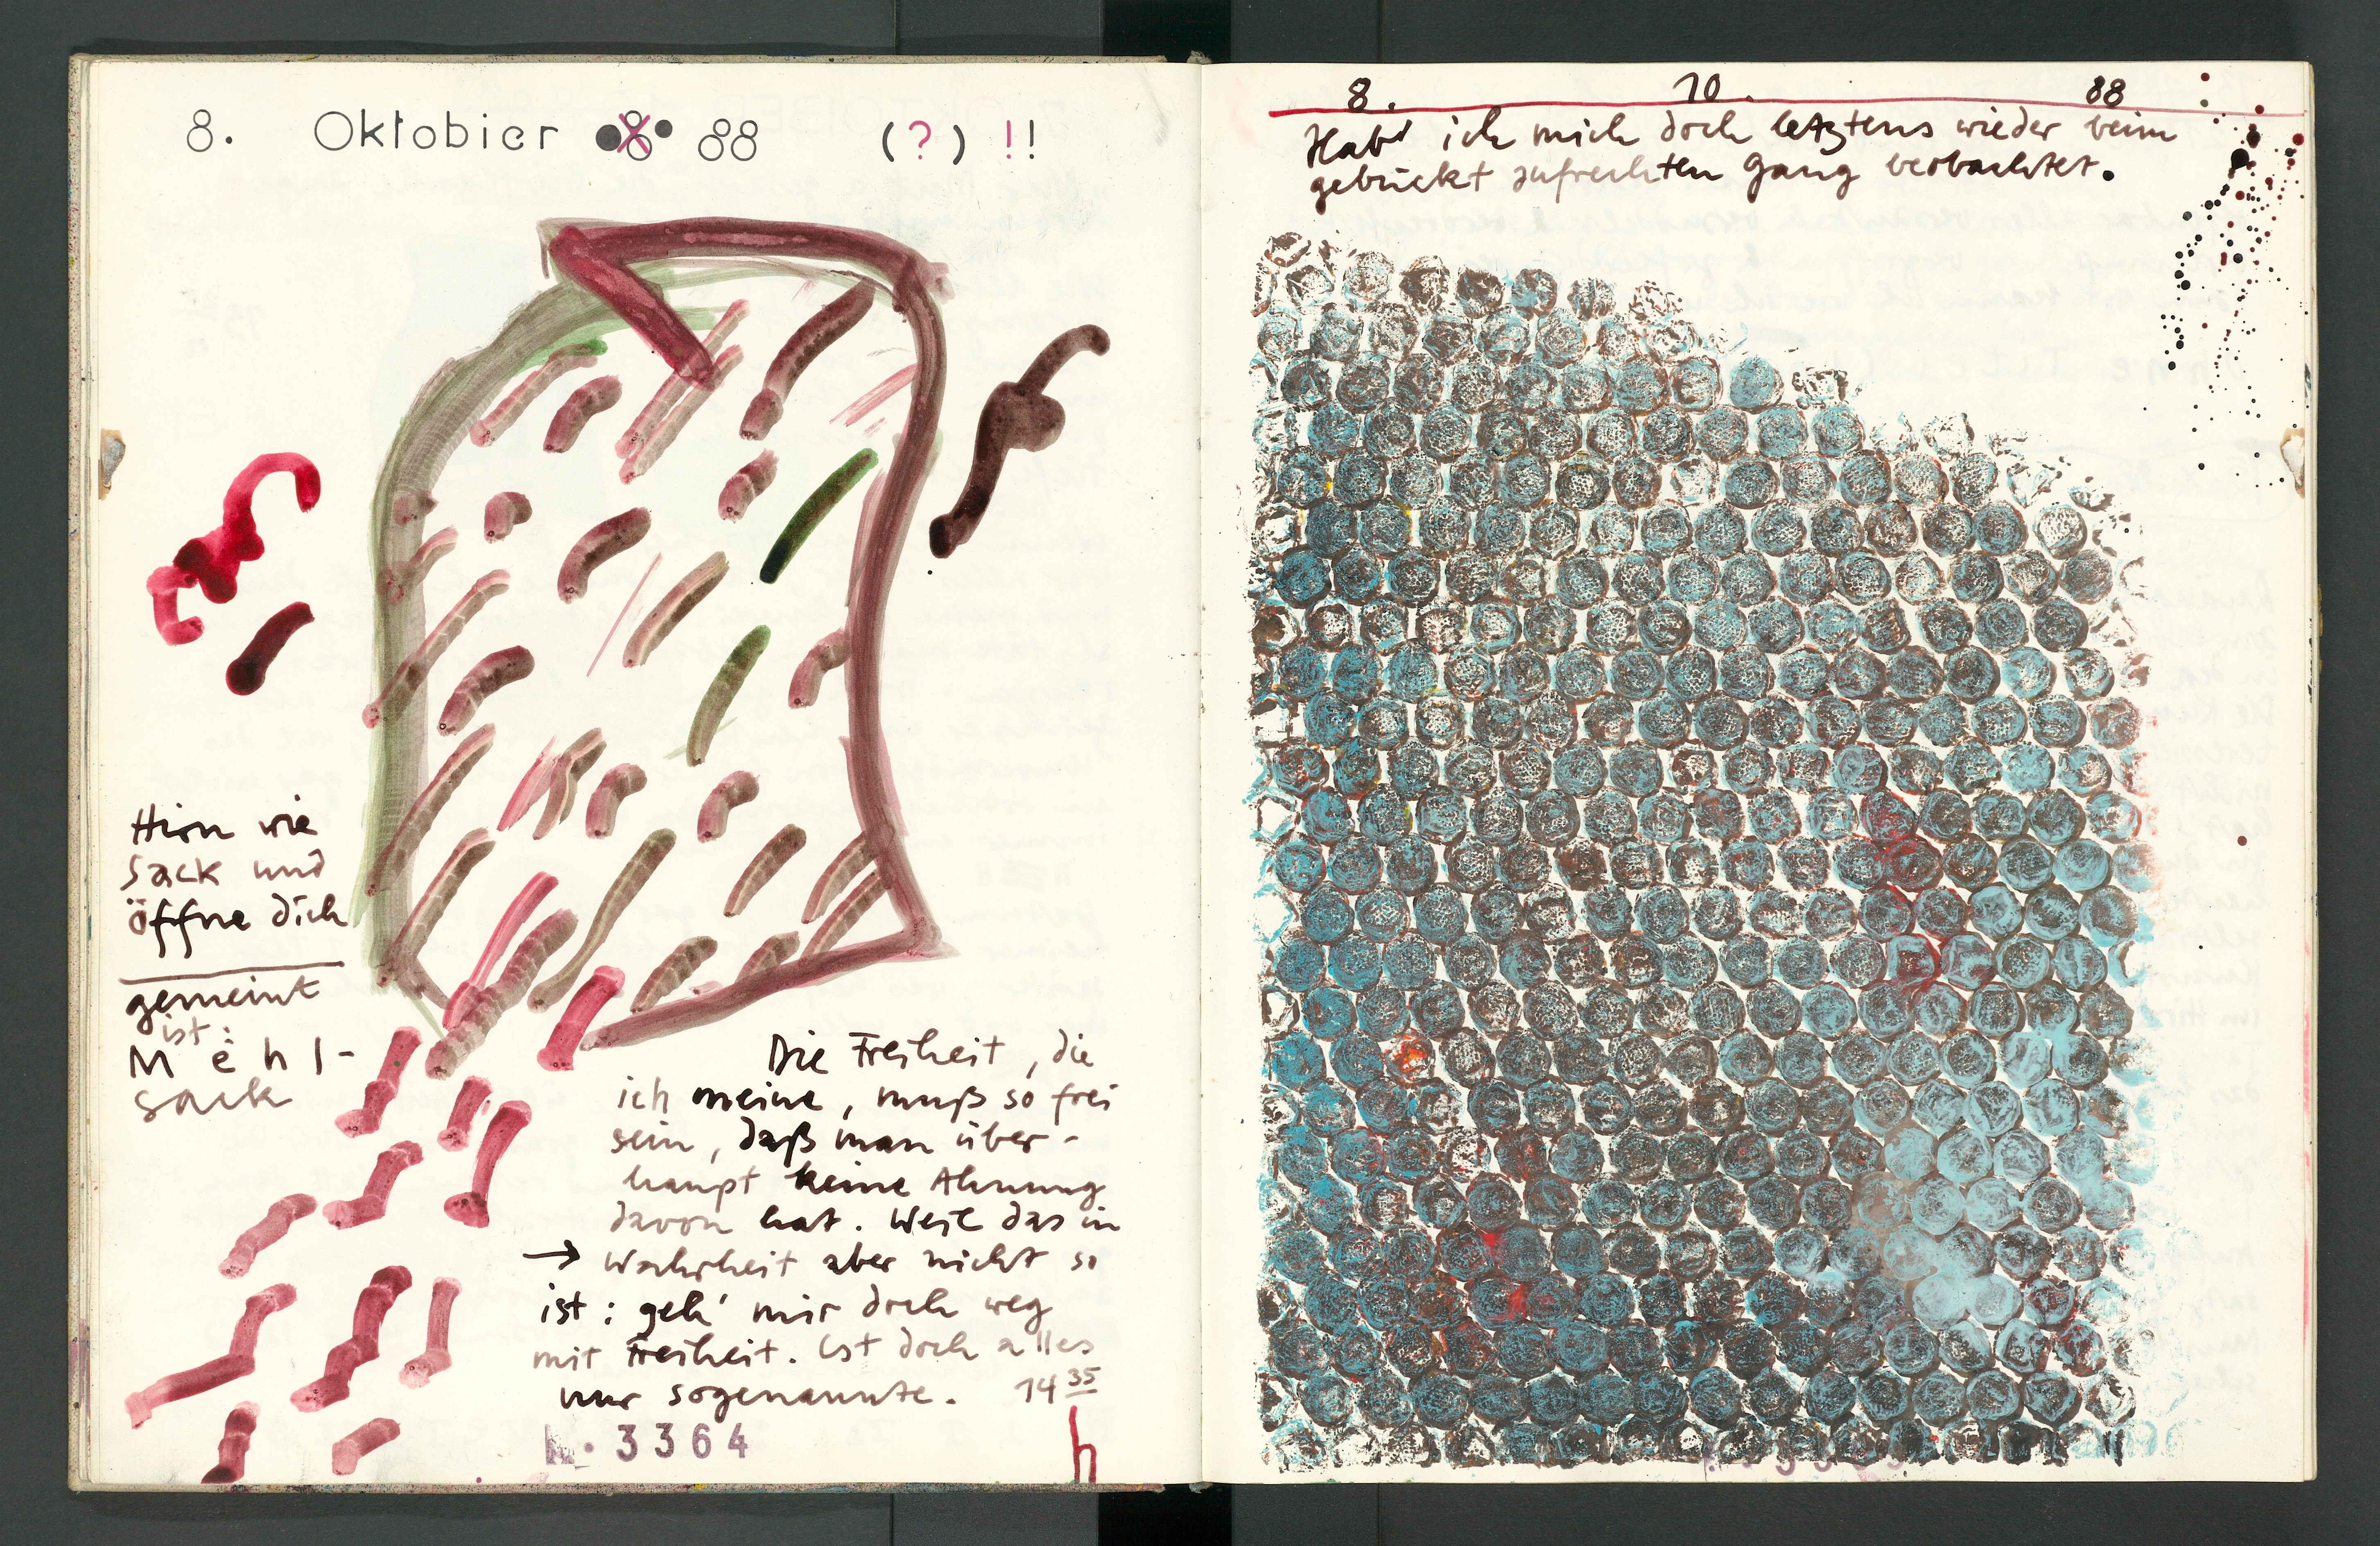 8. Oktobier 88 (?) !!
Hirn wie
Sack und
öffne dich
gemeint
ist:
Mehl-
sack
Die Freiheit, die
ich meine, muß so frei
sein, daß man über-
haupt keine Ahnung
davon hat. Weil das in
→ Wahrheit aber nicht so
ist: geh' mir doch weg
mit Freiheit. Ist doch alles
nur sogenannte. 14 35
h
3364
8. 10. 88
Hab' ich mich doch letztens wieder beim
gebückt aufrechten Gang beobachtet.